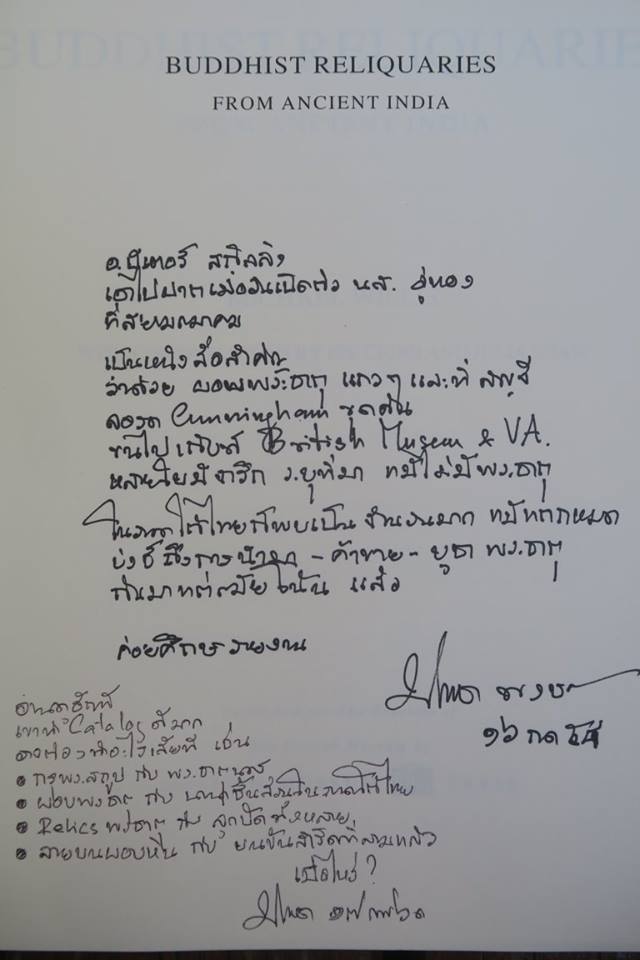 BUDDHIST RELIQUARIES
FROM ANCIENT INDIA
อ.ปีเตอร์ สกิลลิง
เอาไปฝากเมื่อวันเปิดตัว นส. อู่ทอง
ที่สยามสมาคม
เป็นหนังสือสำคัญ
ว่าด้วย ผอบพระธาตุ แถวๆ และที่ สาญจี
ของ Cunningham ขุดค้น
ขนไปเก็บที่ British Museum & VA.
หลายใบมีจารึก ระบุที่มา แต่ไม่มีพระธาตุ
ในภาคใต้ไทยก็พบเป็นจำนวนมาก
บ่งชี้ถึงการนำมา - ค้าขาย - บูชา พระธาตุ
กันมาแต่สมัยโน้น แล้ว
ค่อยศึกษารายงาน
๑๖ กค ๕๕
เขาทำ Catalog ดีมาก
คงต้องทำอะไรเสียที เช่น
• กรุพระสถูป กับ พระธาตุ
• ผอบพระธาตุ กับ นานาชิ้นส่วนในภาคใต้ไทย
• Relics พระธาตุ กับ ลูกปัดทั้งหลาย
• ลายบนผอบหิน กับ บนขันสำริดที่
เมื่อไหร่?